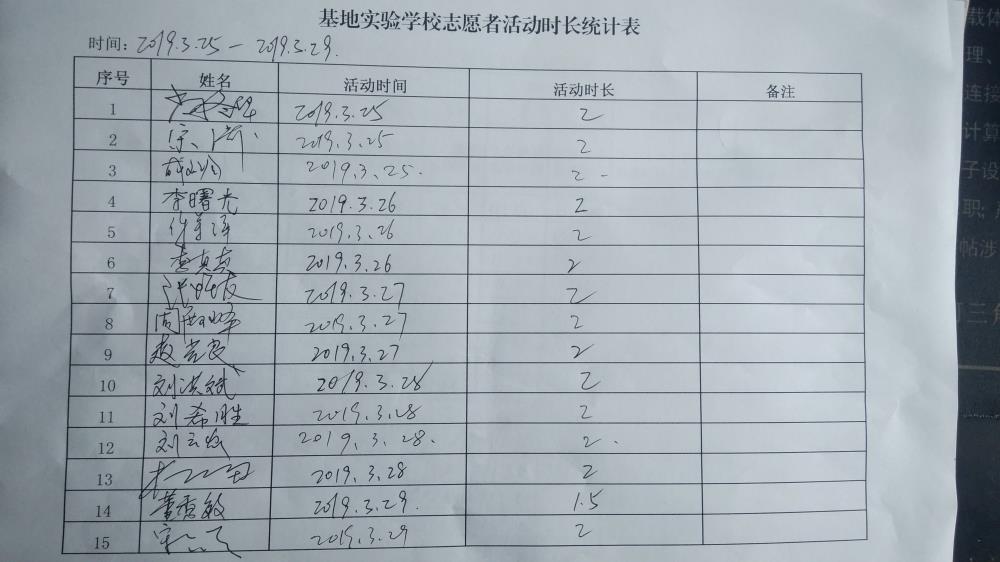 基地实验学校志愿者活动时长统计表
时间：2019.3.25 — 2019.3.29.
序号 姓名 活动时间 活动时长 备注
1 2019.3.25 2
2 2019.3.25 2
3 2019.3.25. 2
4 李曙光 2019.3.26 2
5 2019.3.26 2
6 2019.3.26 2
7 2019.3.27 2
8 2019.3.27 2
9 赵光良 2019.3.27 2
10 刘洪斌 2019.3.28 2
11 刘希胜 2019.3.28 2
12 刘云 2019.3.28. 2
13 2019.3.28 2
14 董秀敏 2019.3.29. 1.5
15 2019.3.29 2
载体
理、
连接
计算
子设
职;
帖涉
三角